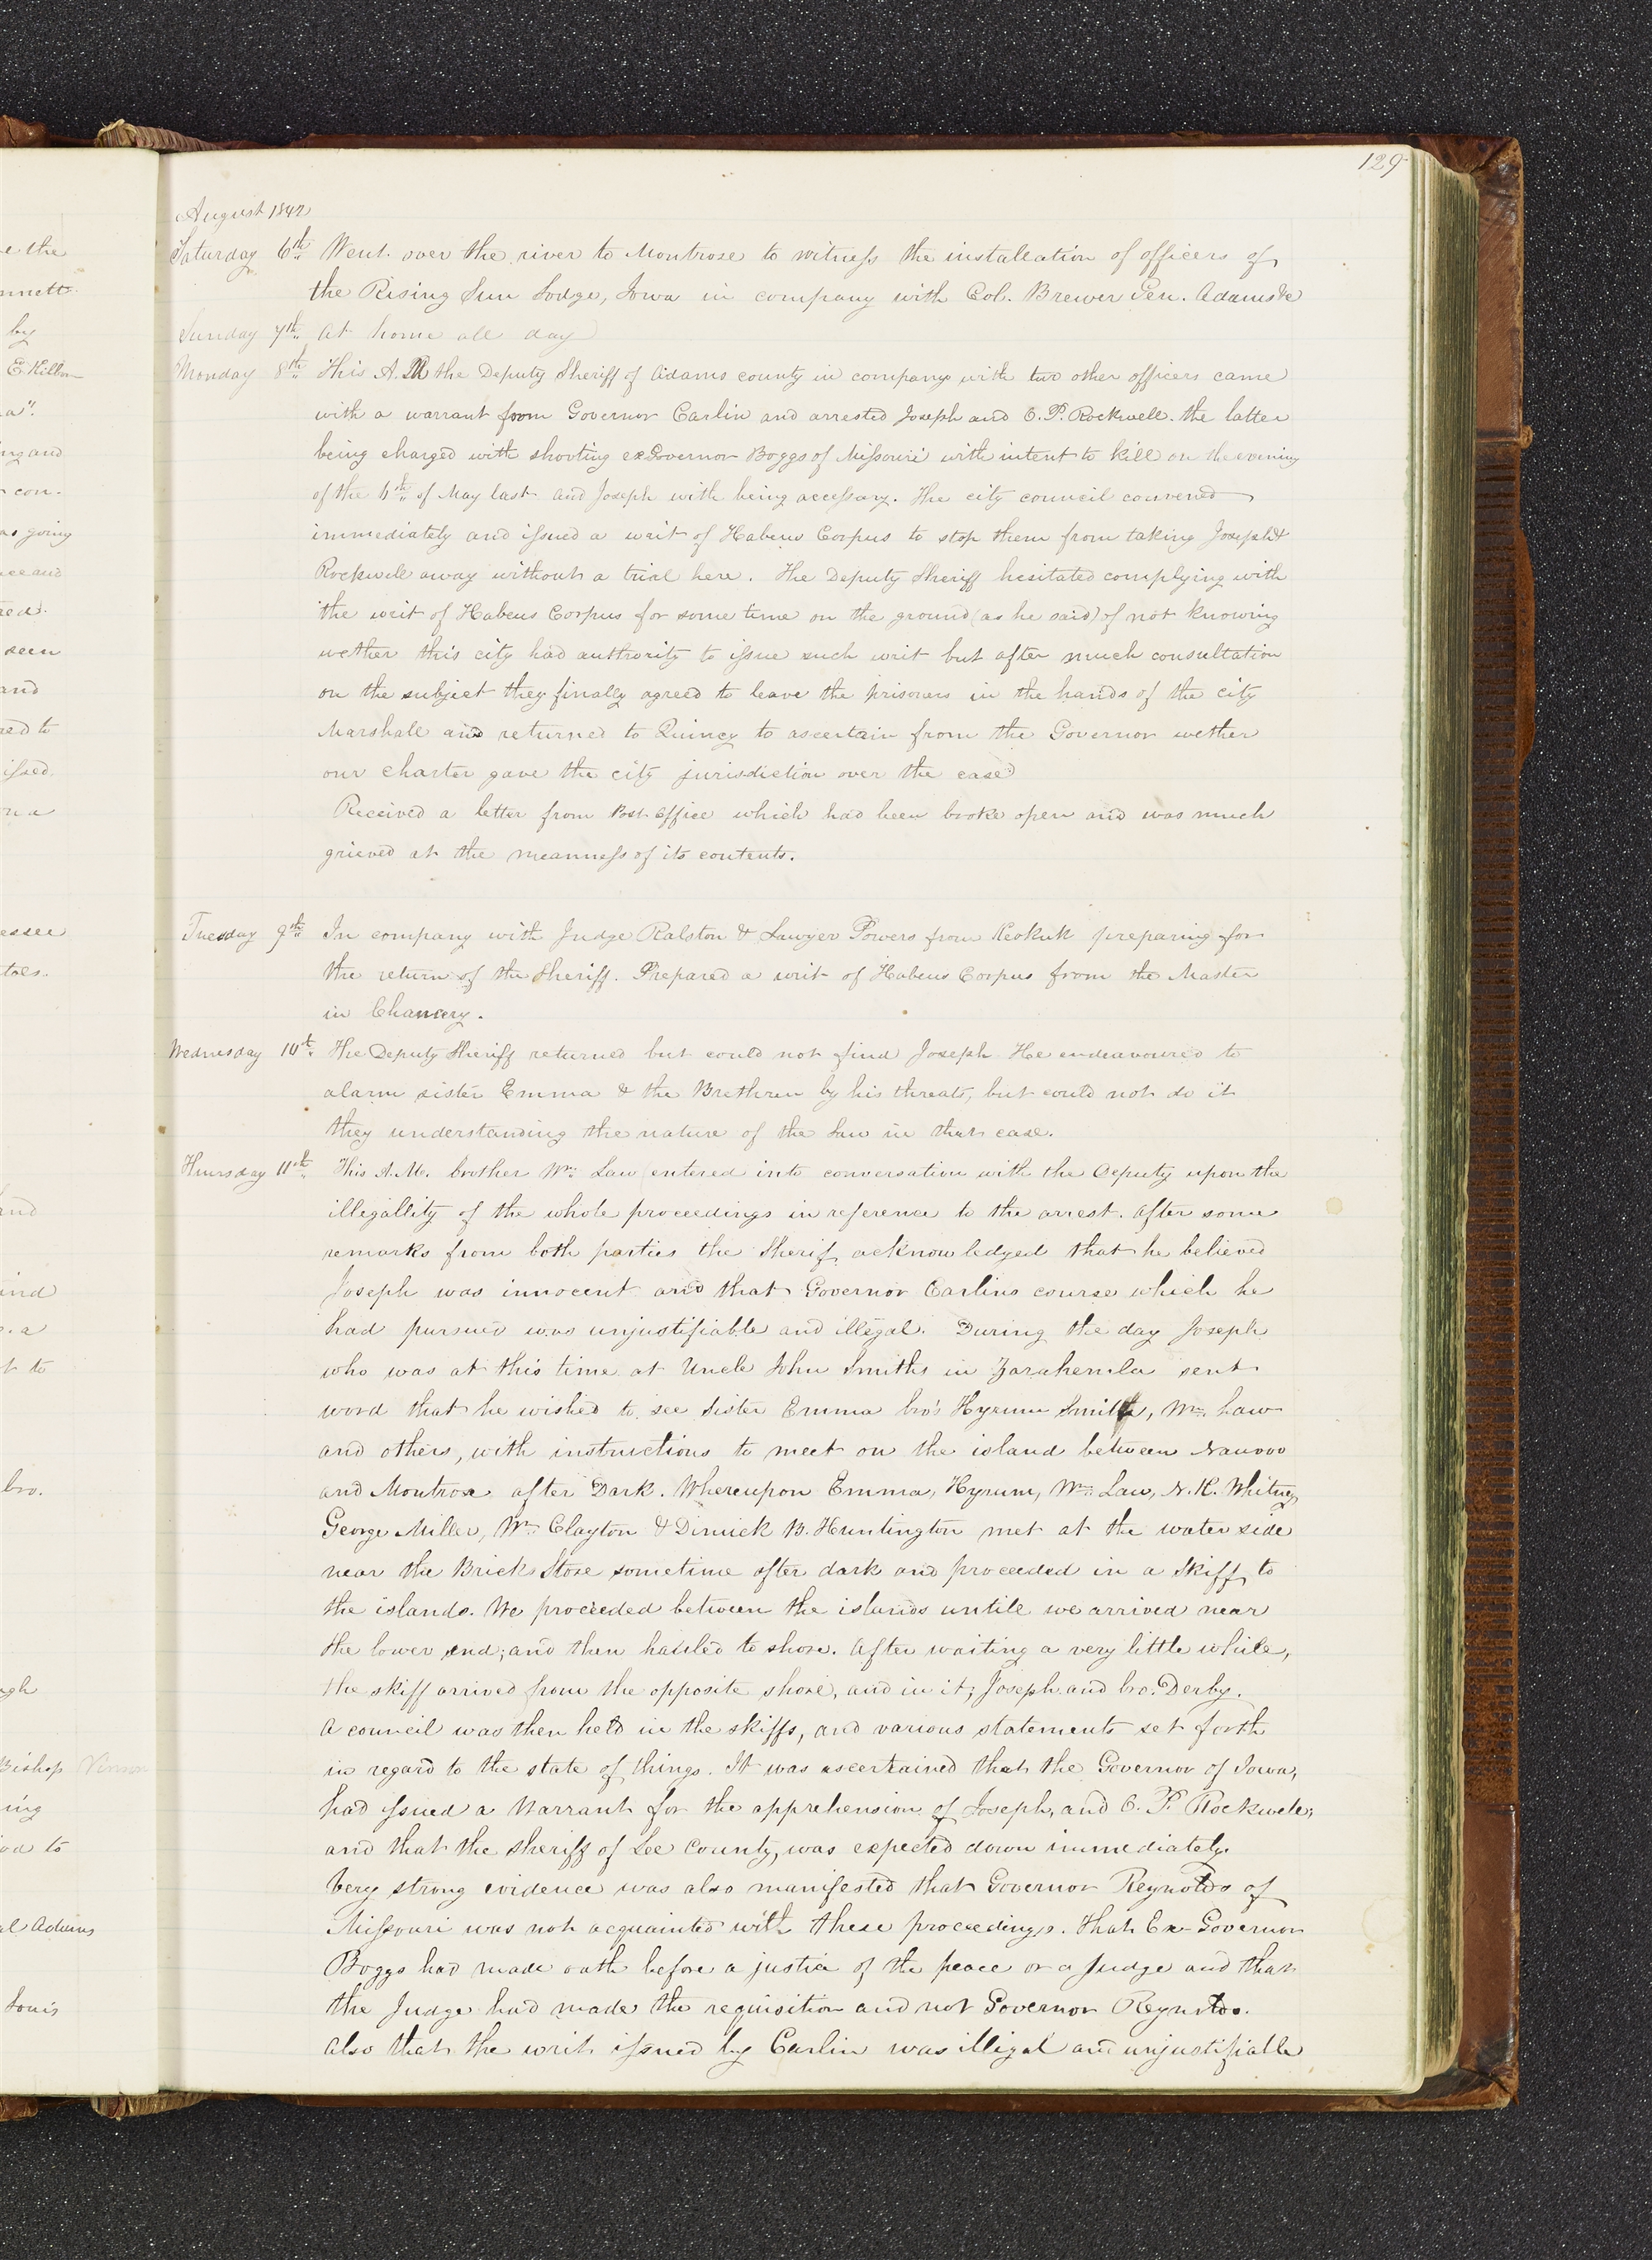 129
August 1842
Saturday 6th.. Went over the river to Montrose to witness the installation of officers of
the Rising Sun Lodge, Iowa in company with Col. Brewer Gen. Adams &c
Sunday 7th.. At home all day
Monday 8th.. This A.M the Deputy Sheriff of Adams county in company with two other officers came
with a warrant from Governor Carlin and arrested Joseph and O. P. Rockwell. the latter
being charged with shooting exGovernor Boggs of Missouri with intent to kill on the evening
of the 6th.. of May last and Joseph with being accessary. The city council convened
immediately and issued a writ of Habeus Corpus to stop them from taking Joseph &
Rockwell away without a trial here. The Deputy Sheriff hesitated complying with
the writ of Habeus Corpus for some time on the ground (as he said) of not knowing
wether this city had authority to issue such writ but after much consultation
on the subject they finally agreed to leave the prisoners in the hands of the city
Marshall and returned to Quincy to ascertain from the Governor wether
our charter gave the city jurisdiction over the case
Received a letter from Post office which had been broke open and was much
grieved at the meanness of its contents.
Tuesday 9th.. In company with Judge Ralston & Lawyer Powers from Keokuk preparing for
the return of the Sheriff. Prepared a writ of Habeus Corpus from the Master
in Chancery.
Wednesday 10th.. The Deputy Sheriff returned but could not find Joseph He endeavoured to
alarm sister Emma & the Brethren by his threats, but could not do it
they understanding the nature of the Law in that case.
Thursday 11th.. This A.M. brother Wm. Law entered into conversation with the Deputy upon the
illegallity of the whole proceedings in reference to the arrest. After some
remarks from both parties the Sherif acknowledged that he believed
Joseph was innocent and that Governor Carlins course which he
had pursued was unjustifiable and illegal. During the day Joseph
who was at this time at Uncle John Smiths in Zarahemla sent
word that he wished to see Sister Emma bro's Hyrum Smith, Wm. Law
and others, with instructions to meet on the island between Nauvoo
and Montrose after Dark. Whereupon Emma, Hyrum, Wm. Law, N. K. Whitney,
George Miller, Wm. Clayton & Dimick B. Huntington met at the water side
near the Brick Store sometime after dark and proceeded in a Skiff to
the islands. We proceeded between the islands untill we arrived near
the lower end; and then hauled to shore. After waiting a very little while,
the skiff arrived from the opposite shore, and in it; Joseph and bro. Derby.
A council was then held in the skiffs, and various statements set forth
in regard to the state of things. It was ascertained that the Governor of Iowa,
had issued a Warrant for the apprehension of Joseph, and O. P. Rockwell;
and that the sheriff of Lee County, was expected down immediately.
Very strong evidence was also manifested that Governor Reynolds of
Missouri was not acquainted with these proceedings. That Ex-Governor
Boggs had made oath before a justice of the peace or a Judge and that
the Judge had made the requisition and not Governor Reynolds.
also that the writ issued by Carlin was illegal and unjustifiable